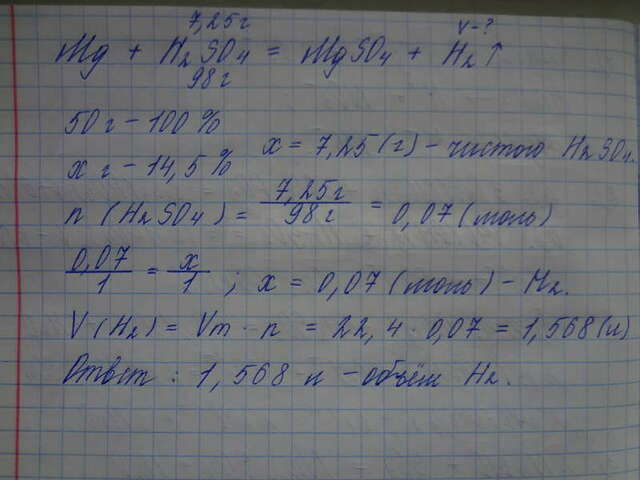 7,25 г V - ?
Mg + H₂SO₄ = MgSO₄ + H₂↑
98 г
50 г - 100 %
x г - 14,5 % x = 7,25 (г) - чистого H₂SO₄
n (H₂SO₄) = 7,25 г / 98 г = 0,07 (моль)
0,07 / 1 = x / 1 ; x = 0,07 (моль) - H₂.
V(H₂) = Vm · n = 22,4 · 0,07 = 1,568 (л)
Ответ : 1,568 л - объём H₂.